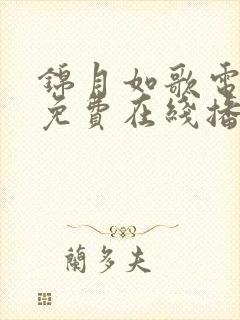 錦月如歌電
免費在綫播
蘭多夫